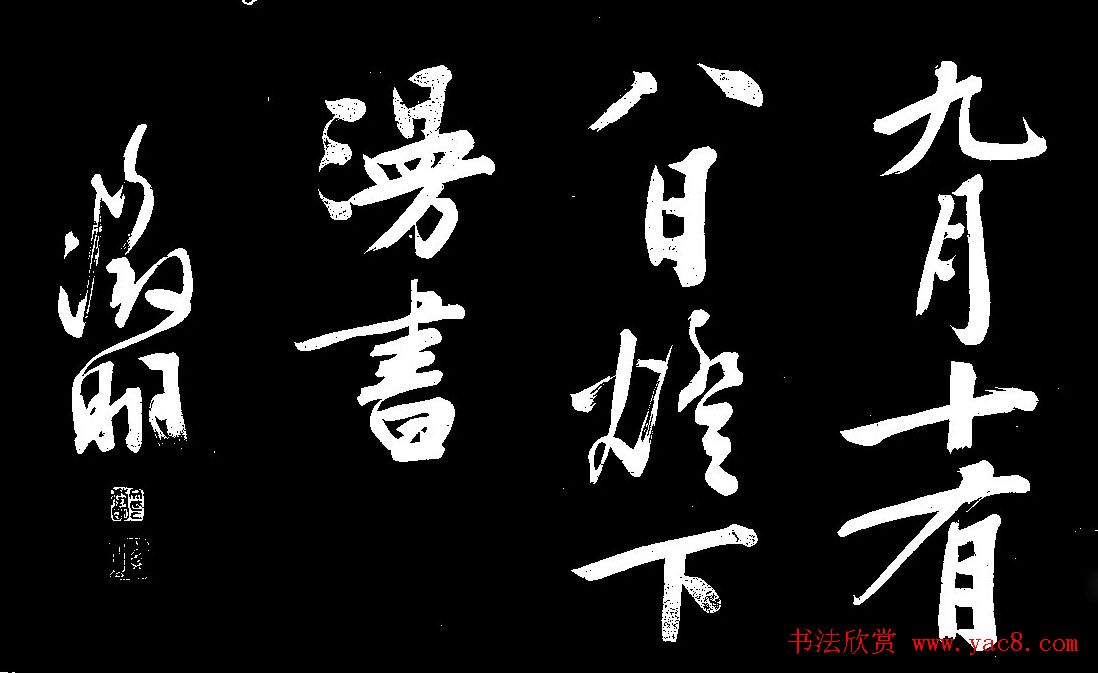 九月十有
八日燈下
漫書
徵明
书法欣赏 www.yac8.com